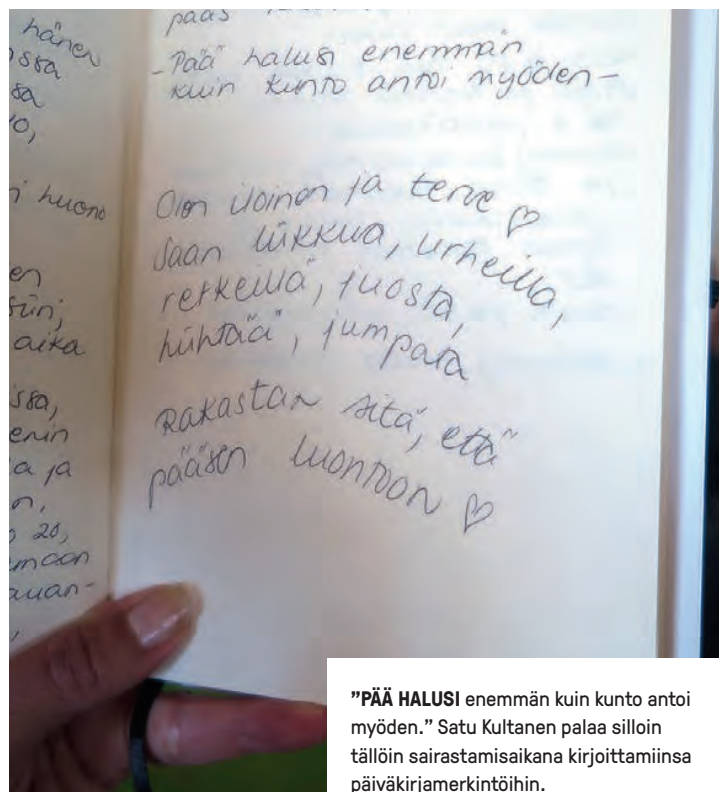 hänen
ssa
sa
10,
huono
en
siin,
aika
ssa,
enin
a ja
n,
20,
maan
auan-
pääs
-Pää halusi enemmän
kuin kunto antoi myöden-
Olen iloinen ja terve ♡
Saan liikkua, urheilla,
retkeillä, juosta,
hiihtää, jumpata
Rakastan sitä, että
pääsen luontoon ♡
”PÄÄ HALUSI enemmän kuin kunto antoi
myöden.” Satu Kultanen palaa silloin
tällöin sairastamisaikana kirjoittamiinsa
päiväkirjamerkintöihin.